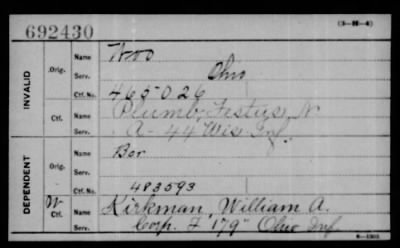 692430
(3-H-4)
INVALID
Orig.
Name Woo
Serv. Ohio
Ctf. No. 465026
Ctf.
Name Plumb, Festus N
Serv. A- 44" Wis Inf.
DEPENDENT
Orig.
Name Bor
Serv.
Ctf. No. 483593
W
Ctf.
Name Kirkman, William A.
Serv. Corp. F 179" Ohio Inf
6-1301